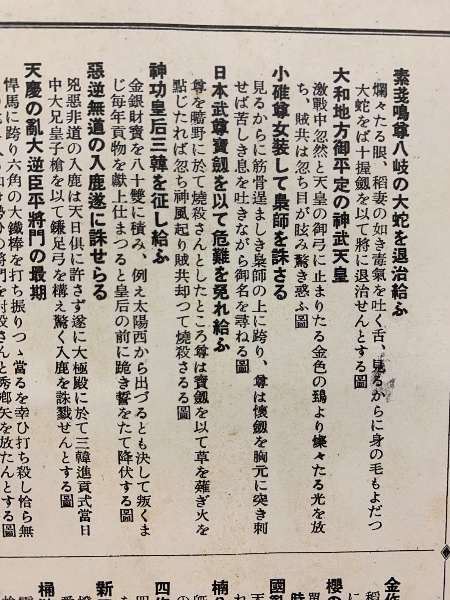 素戔嗚尊八岐の大蛇を退治給ふ
爛々たる眼、稻妻の如き毒氣を吐く舌、見るからに身の毛もよだつ
大蛇をば十握劔を以て將に退治せんとする圖
大和地方御平定の神武天皇
激戰中忽然と天皇の御弓に止まりたる金色の鵄より燦々たる光を放
ち、賊共は忽ち目が眩み驚き惑ふ圖
小碓尊女裝して梟師を誅さる
見るからに筋骨逞ましき梟師の上に跨り、尊は懷劔を胸元に突き刺
せば苦しき息を吐きながら御名を尋ねる圖
日本武尊寶劔を以て危難を免れ給ふ
尊を嚮野に於て燒殺さんとしたところ尊は寶劔を以て草を薙ぎ火を
點じたれば忽ち神風起り賊共却つて燒殺さるる圖
神功皇后三韓を征し給ふ
金銀財寶を八十雙に積み、例え太陽西から出づるとも決して叛くま
じ每年貢物を獻上仕まつると皇后の前に跪き誓をたて降伏する圖
惡逆無道の入鹿遂に誅せらる
兇惡非道の入鹿は天日俱に許さず遂に大極殿に於て三韓進貢式當日
中大兄皇子槍を以て鎌足弓を構え驚く入鹿を誅戮せんとする圖
天慶の亂大逆臣平將門の最期
悍馬に跨り六角の大鐵棒を打ち振りつゝ當るを幸ひ打ち殺し恰ら無
の將門を射殺さんと秀鄕矢を放たんとする圖
金作
稻
に
櫻の
單
時
國
天
楠
師
の
四
新
燈
番
桶